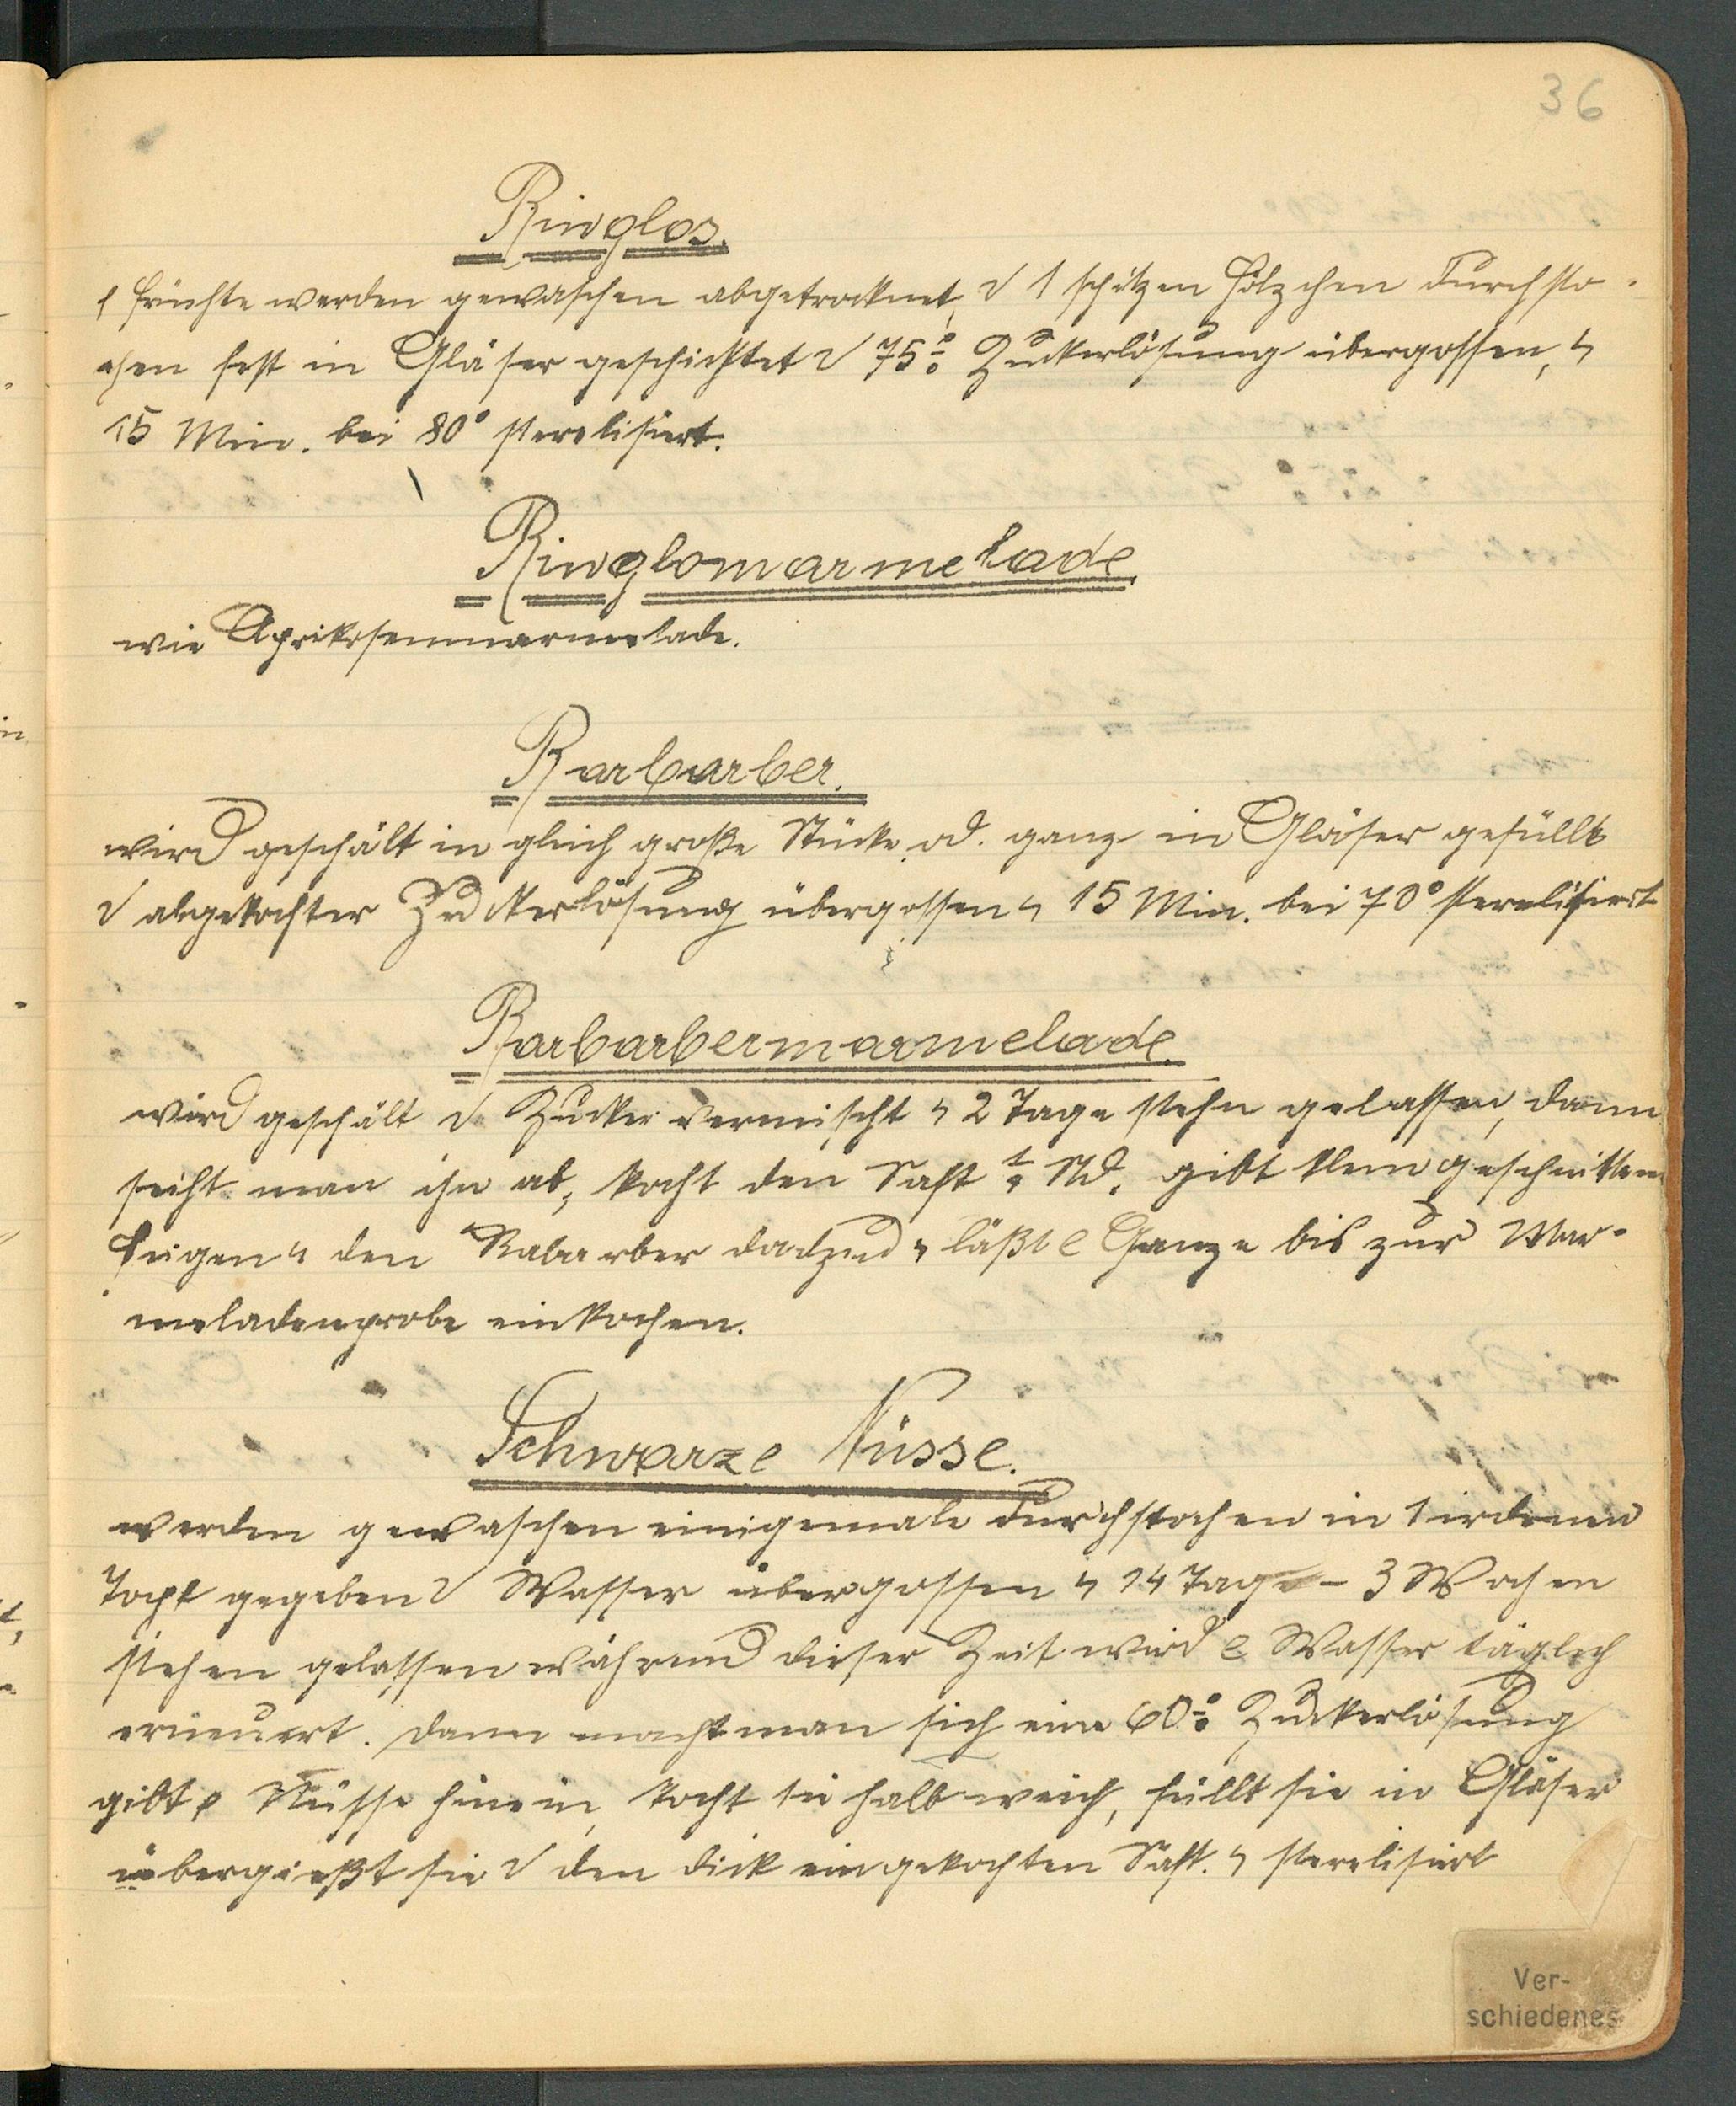 36
Ringlos.
Früchte werden gewaschen abgetrocknet, 1 spitzen Hölzchen durchsto-
chen fest in Gläser geschichtet 75% Zuckerlösung übergossen,
15 Min. bei 80° sterelisiert.
Ringlomarmelade.
wie Aprikosenmarmelade.
Barbarber.
wird geschält in gleich große Stücke od. ganz in Gläser gefüllt
abgekochter Zuckerlösung übergossen 15 Min. bei 70° sterelisiert
Barbarbermarmelade.
wird geschält Zucker vermischt 2 Tage stehn gelassen, dann
seiht man ihn ab, kocht den Saft Std. gibt klein geschnittene
Feigen den Rabarber dazu läßt Ganze bis zur Mar-
meladenprobe einkochen.
Schwarze Nüsse.
werden gewaschen einigemale durchstochen in 1 irdenen
Topf gegeben Wasser übergossen 14 Tage - 3 Wochen
stehen gelassen während dieser Zeit wird Wasser täglich
erneuert. Dann macht man sich eine 60% Zuckerlösung
gibt Nüsse hinein, kocht sie halb weich, füllt sie in Gläser
übergießt sie den dick eingekochten Saft. sterelisiert
Ver-
schiedenes